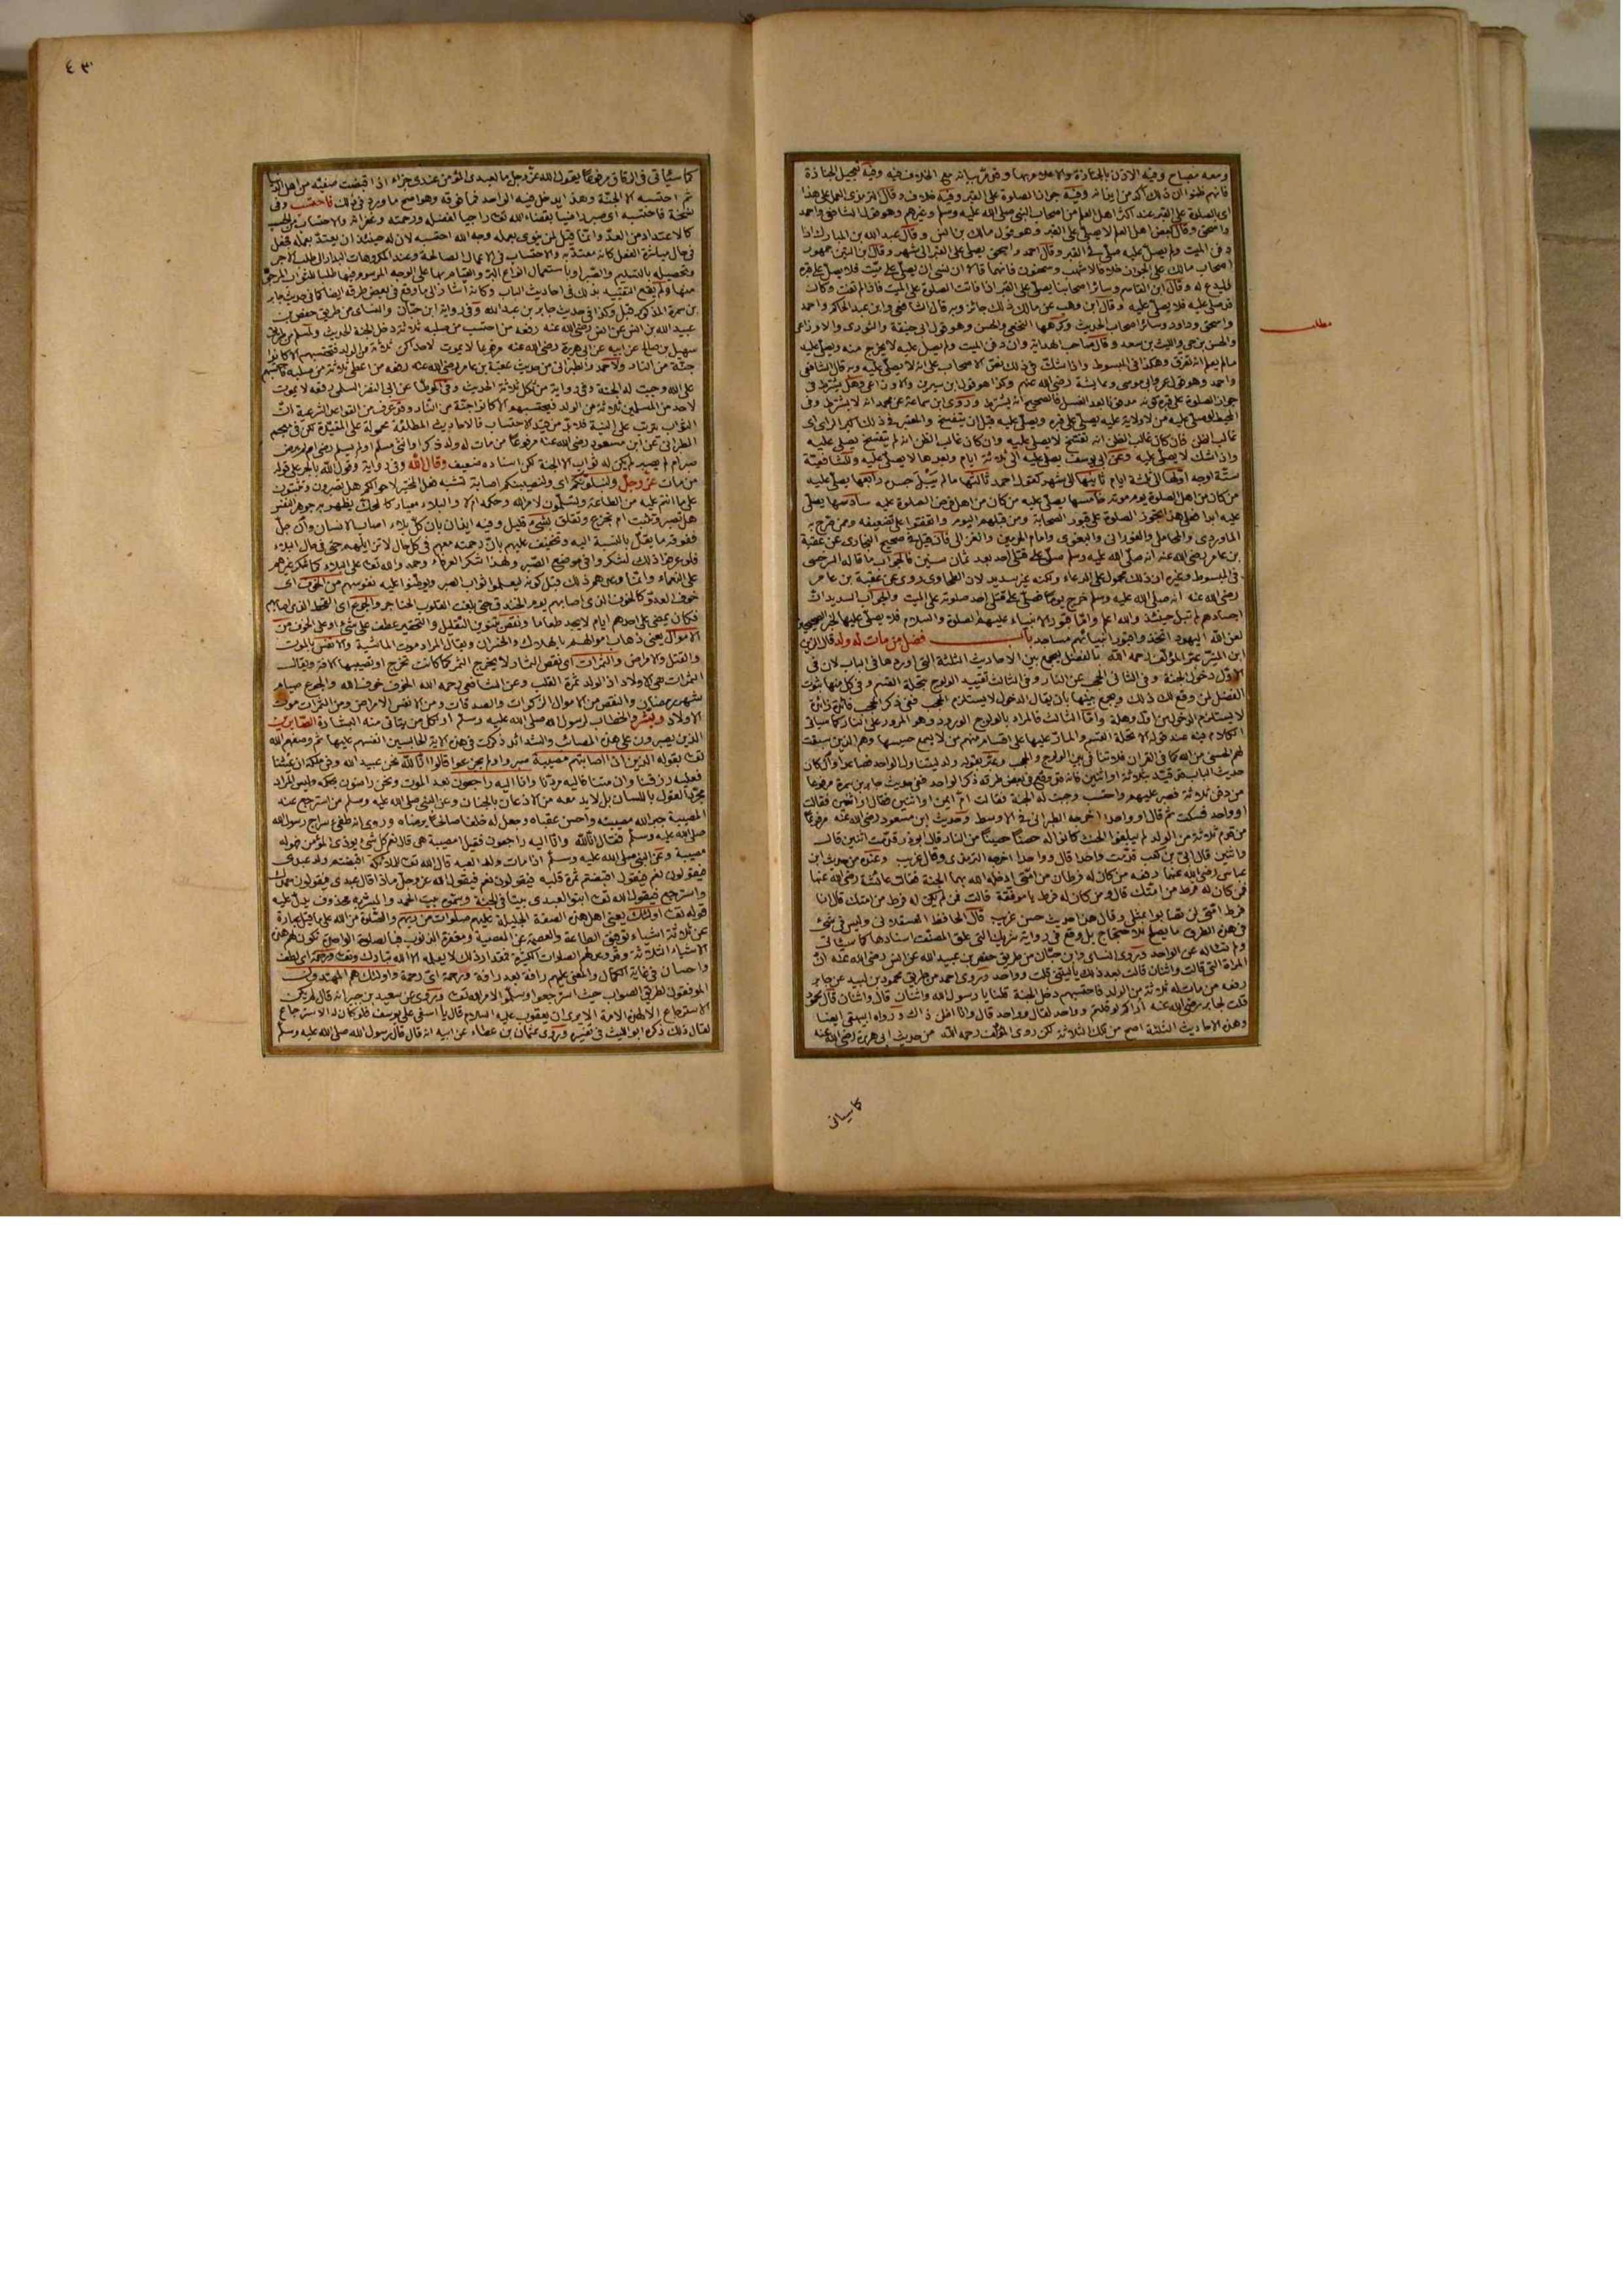 ومعه مصباح وفيه الاذن بالجنازة والاعلام بها وقد مر بيانه مع الخلاف فيه وفيه تعجيل الجنازة
فانهم ظنوا ان ذلك آكد من ايذانه وفيه جواز الصلوة على القبر وفيه خلاف وقال الترمذى العمل على هذا
اى الصلوة على القبر عند اكثر اهل العلم من اصحاب النبى صلى الله عليه وسلم وغيرهم وهو قول الشافعى واحمد
واسحق وقال بعض اهل العلم لا يصلى على القبر وهو قول مالك بن انس وقال عبد الله بن المبارك اذا
دفن الميت ولم يصل عليه صلى على القبر وقال احمد واسحق يصلى على القبر الى شهر وقال ابن التين جمهور
اصحاب مالك على الجواز خلافا لاشهب وسحنون فانهما قالا ان نسى ان يصلى على ميت فلا يصلى على قبره
وليدع له وقال ابن القاسم وسائر اصحابنا يصلى على القبر اذا فاتت الصلوة على الميت فاذا لم تفت وكان
قد صلى عليه فلا يصلى عليه وقال ابن وهب عن مالك ذلك جائز وبه قال الشافعى وابن عبد الحكم واحمد
واسحق وداود وسائر اصحاب الحديث وكرهها النخعى والحسن وهو قول ابى حنيفة والثورى والاوزاعى
مطلب
والحسن بن حى والليث بن سعد وقال صاحب الهداية وان دفن الميت ولم يصل عليه لا يخرج منه ويصلى عليه
مالم يعلم انه تفرق وهكذا فى المبسوط واذا شك فى ذلك نص الاصحاب على انه لا يصلى عليه وبه قال الشافعى
واحمد وهو قول عمر وابى موسى وعايشة رضى الله عنهم وكذا هو قول ابن سيرين والاوزاعى وهل يشترط فى
جواز الصلوة على قبره كونه مدفونا بعد الغسل فالصحيح انه يشترط وروى ابن سماعة عن محمد انه لا يشترط وفى
المحيط لو صلى عليه من لا ولاية عليه يصلى على قبره ويصلى عليه قبل ان يتفسخ والمعتبر فى ذلك اكبر الراى اى
غالب الظن فان كان غالب الظن انه تفسخ لا يصلى عليه وان كان غالب الظن انه لم يتفسخ يصلى عليه
واذا شك لا يصلى عليه وعن ابى يوسف يصلى عليه الى ثلاثة ايام وبعدها لا يصلى عليه وللشافعية
ستة اوجه اولها الى ثلثة ايام ثانيها الى شهر كقول احمد ثالثها مالم يبل جسده رابعها يصلى عليه
من كان من اهل الصلوة يوم موته خامسها يصلى عليه من كان من اهل فرض الصلوة عليه سادسها يصلى
عليه ابدا فعلى هذا يجوز الصلوة على قبور الصحابة ومن قبلهم اليوم واتفقوا على تضعيفه وممن صرح به
الماوردى والمحاملى والفورانى والبغوى وامام الحرمين والغزالى فان قيل فى صحيح البخارى عن عقبة
بن عامر رضى الله عنه انه صلى الله عليه وسلم صلى على قتلى احد بعد ثمان سنين فالجواب ما قاله السرخسى
فى المبسوط وغيره ان ذلك محمول على الدعاء ولكنه غير سديد لان الطحاوى روى عن عقبة بن عامر
رضى الله عنه انه صلى الله عليه وسلم خرج يوما فصلى على قتلى احد صلوته على الميت والجواب السديد ان
اجسادهم لم تبل حينئذ والله اعلم واما قبور الانبياء عليهم الصلوة والسلام فلا يصلى عليها لخبر الصحيحين
لعن الله اليهود اتخذوا قبور انبيائهم مساجد باب فضل من مات له ولد قال الزين
ابن المنير عبر المؤلف رحمه الله بالفضل ليجمع بين الاحاديث الثلثة التى اوردها فى الباب لان فى
الاول دخول الجنة وفى الثانى الحجب عن النار وفى الثالث تقييد الولوج بتحلة القسم وفى كل منها ثبوت
الفضل لمن وقع له ذلك ويجمع بينها بان يقال الدخول لا يستلزم الحجب ففى ذكر الحجب فائدة زائدة
لا يستلزم الدخول من اول وهلة واما الثالث فالمراد بالولوج الورود وهو المرور على النار كما سياتى
الكلام فيه عند قوله الا تحلة القسم والمار عليها على اقسام منهم من لا يسمع حسيسها وهم الذين سبقت
لهم الحسنى من الله كما فى القران فلا تنافى بين الولوج والحجب وعبر بقوله ولد ليتناول الواحد فصاعدا وان كان
حديث الباب قد قيد بثلاثة او اثنين فانه قد وقع فى بعض طرقه ذكر الواحد ففى حديث جابر بن سمرة مرفوعا
من دفن ثلاثة فصبر عليهم واحتسب وجبت له الجنة فقالت ام ايمن او اثنين فقال او اثنين فقالت
او واحد فسكت ثم قال او واحدا اخرجه الطبرانى فى الاوسط وحديث ابن مسعود رضى الله عنه مرفوعا
من قدم ثلاثة من الولد لم يبلغوا الحنث كانوا له حصنا حصينا من النار قال ابو ذر قدمت اثنين قال
واثنين قال ابى بن كعب قدمت واحدا قال وواحدا اخرجه الترمذى وقال غريب وعنده من حديث ابن
عباس رضى الله عنهما رفعه من كان له فرطان من امتى ادخله الله بهما الجنة فقالت عائشة رضى الله عنها
فمن كان له فرط من امتك قال ومن كان له فرط يا موفقة قالت فمن لم يكن له فرط من امتك قال انا
فرط امتى لن يصابوا بمثلى وقال هذا حديث حسن غريب قال الحافظ العسقلانى وليس فى شىء
فى هذه الطرق ما يصلح للاحتجاج بل وقع فى رواية شريك التى علق المصنف اسنادها كما سياتى
ولم نسأله عن الواحد وروى النسائى وابن حبان من طريق حفص بن عبيد الله عن انس رضى الله عنه ان
المراة التى قالت واثنان قالت بعد ذلك يا ليتنى قلت وواحد وروى احمد من طريق محمود بن لبيد عن جابر
رفعه من مات له ثلاثة من الولد فاحتسبهم دخل الجنة قلنا يا رسول الله واثنان قال واثنان قال محمود
قلت لجابر رضى الله عنه اراكم لو قلتم وواحد لقال وواحد قال وانا اظن ذاك ورواه البيهقى ايضا
وهذه الاحاديث الثلثة اصح من تلك الثلاثة لكن روى المؤلف رحمه الله من حديث ابى هريرة رضى الله عنه
كما سياتى
٤٣
كما سياتى فى الرقاق مرفوعا يقول الله عز وجل ما لعبدى المؤمن عندى جزاء اذا قبضت صفيه من اهل الدنيا
ثم احتسبه الا الجنة وهذا يدخل فيه الواحد فما فوقه وهو اصح ما ورد فى ذلك فاحتسب وفى
نسخة فاحتسبه اى صبر راضيا بقضاء الله تعا راجيا لفضله ورحمته وغفرانه والاحتساب من الحسب
كالاعتداد من العد وانما قيل لمن ينوى بعمله وجه الله احتسبه لان له حينئذ ان يعتد بعمله فجعل
فى حال مباشرة الفعل كانه معتد به والاحتساب فى الاعمال الصالحة وعند المكروهات البدار الى طلب الاجر
وتحصيله بالتسليم والصبر او باستعمال انواع البر والقيام بها على الوجه المرسوم فيها طلبا للثواب المرجو
منها ولم يقع التقييد بذلك فى احاديث الباب وكانه اشار الى ما وقع فى بعض طرقه ايضا كما فى حديث جابر
بن سمرة المذكور قبل وكذا فى حديث جابر بن عبد الله وفى رواية ابن حبان والنسائى من طريق حفص بن
عبيد الله بن انس عن انس رضى الله عنه رفعه من احتسب من صلبه ثلاثة دخل الجنة الحديث ولمسلم من طريق
سهيل بن صالح عن ابيه عن ابى هريرة رضى الله عنه مرفوعا لا يموت لاحداكن ثلاثة من الولد فتحتسبهم الا كانوا
جنة من النار ولاحمد والطبرانى من حديث عقبة بن عامر رضى الله عنه رفعه من اعطى ثلاثة من صلبه فاحتسبهم
على الله وجبت له الجنة وفى رواية من ثكل ثلاثة الحديث وفى الموطأ عن ابى النضر السلمى رفعه لا يموت
لاحد من المسلمين ثلاثة من الولد فيحتسبهم الا كانوا جنة من النار وقد عرف من القواعد الشرعية ان
الثواب يترتب على النية فلا بد من قيد الاحتساب فالاحاديث المطلقة محمولة على المقيدة لكن فى معجم
الطبرانى عن ابن مسعود رضى الله عنه مرفوعا من مات له ولد ذكر او انثى سلم او لم يسلم رضى ام لم يرض
صبر ام لم يصبر لم يكن له ثواب الا الجنة لكن اسناده ضعيف وقال الله وفى رواية وقول الله بالجر على قوله
من مات عز وجل ولنبلونكم اى ولنصيبنكم اصابة تشبه فعل المختبر لاحوالكم هل تصبرون وتثبتون
على ما انتم عليه من الطاعة وتسلمون لامر الله وحكمه ام لا والبلاء معيار كالمحك يظهر به جوهر النفس
هل تصبر وتثبت ام تجزع وتقلق بشىء قليل وفيه ايذان بان كل بلاء اصاب الانسان وان جل
ففوقه ما يقل بالنسبة اليه وتخفيف عليهم بان رحمته معهم فى كل حال لا تزايلهم حتى فى حال البلاء
فلو عرفوا ذلك لشكروا فى موضع الصبر ولهذا شكر العرفاء وحمدوا الله تعا على البلاء كما شكر غيرهم
على النعماء وانما وعدهم ذلك قبل كونه ليعلموا ثواب الصبر ويوطنوا عليه نفوسهم من الخوف اى
خوف العدو كالخوف الذى اصابهم يوم الخندق حتى بلغت القلوب الحناجر والجوع اى القحط الذى اصابهم
فكان يمضى على احدهم ايام لا يجد طعاما ونقص بتنوين التقليل والتحقير عطف على شىء او على الخوف من
الاموال يعنى ذهاب اموالهم بالهلاك والخسران ويقال المراد موت الماشية والانفس بالموت
والقتل والامراض والثمرات اى نقص الثمار لا يخرج الثمر كما كانت تخرج او تصيبها الافة ويقال
الثمرات هى الاولاد اذ الولد ثمرة القلب وعن الشافعى رحمه الله الخوف خوف الله والجوع صيام
شهر رمضان والنقص من الاموال الزكوات والصدقات ومن الانفس الامراض ومن الثمرات موت
الاولاد وبشر والخطاب لرسول الله صلى الله عليه وسلم او لكل من يتاتى منه البشارة الصابرين
الذين يصبرون على هذه المصائب والشدائد ذكرت فى هذه الاية الحابسين انفسهم عليها ثم وصفهم الله
تعا بقوله الذين اذا اصابتهم مصيبة صبروا ولم يجزعوا قالوا انا لله نحن عبيد الله وفى ملكه ان عشنا
فعليه رزقنا وان متنا فاليه مردنا وانا اليه راجعون بعد الموت ونحن راضون بحكمه وليس المراد
مجرد القول باللسان بل لابد معه من الاذعان بالجنان وعن النبى صلى الله عليه وسلم من استرجع عند
المصيبة جبر الله مصيبته واحسن عقباه وجعل له خلفا صالحا يرضاه وروى انه طفئ سراج رسول الله
صلى الله عليه وسلم فقال انا لله وانا اليه راجعون فقيل امصيبة هى قال نعم كل شىء يوذى المؤمن فهو له
مصيبة وعن النبى صلى الله عليه وسلم اذا مات ولد العبد قال الله تعا للملائكة اقبضتم ولد عبدى
فيقولون نعم فيقول اقبضتم ثمرة قلبه فيقولون نعم فيقول الله عز وجل ماذا قال عبدى فيقولون حمدك
واسترجع فيقول الله تعا ابنوا لعبدى بيتا فى الجنة وسموه بيت الحمد والمبشر به محذوف يدل عليه
قوله تعا اولئك يعنى اهل هذه الصفة الجليلة عليهم صلوات من ربهم والصلوة من الله على ما قيل عبارة
عن ثلاثة اشياء توفيق الطاعة والعصمة عن المعصية ومغفرة الذنوب فبالصلوة الواحدة تكون لهم هذه
الاشياء الثلاثة وقد وعد لهم الصلوات الكثيرة فمقدار ذلك لا يعلمه الا الله تبارك وتعا ورحمة اى لطف
واحسان فى غاية الكمال والمعنى عليهم رافة بعد رافة ورحمة اى رحمة واولئك هم المهتدون
الموفقون لطريق الصواب حيث استرجعوا وسلموا لامر الله تعا وروى عن سعيد بن جبير انه قال لم يكن
الاسترجاع الا لهذه الامة الا يرى ان يعقوب عليه السلام قال يا اسفى على يوسف فلو كان له الاسترجاع
لقال ذلك ذكره ابو الليث فى تفسيره وروى عثمان بن عطاء عن ابيه انه قال قال رسول الله صلى الله عليه وسلم